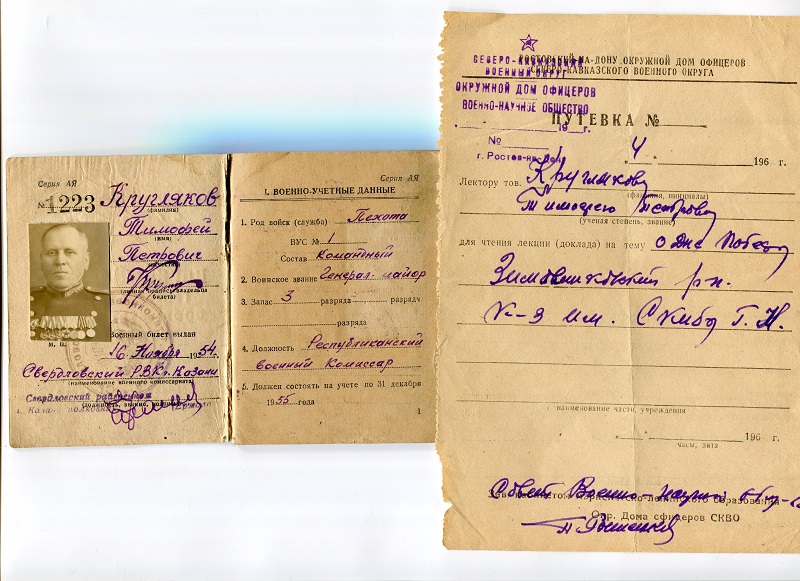 Серия АЯ
№ 1223 Кругляков
(фамилия)
Тимофей
(имя)
Петрович
(личная подпись владельца
билета)
М. П.
Военный билет выдан
16 Ноября 1954 г.
Свердловский РВК г. Казани
(наименование военного комиссариата)
Свердловский
г. Казани
(должность, звание,
Серия АЯ
I. ВОЕННО-УЧЕТНЫЕ ДАННЫЕ
1. Род войск (служба) Пехота
ВУС № 1
Состав Командный
2. Воинское звание Генерал-майор
3. Запас 3 разряда разряда
разряда
4. Должность Республиканский
военный Комиссар
5. Должен состоять на учете по 31 декабря
1955 года
1
РОСТОВСКИЙ-НА-ДОНУ ОКРУЖНОЙ ДОМ ОФИЦЕРОВ
СЕВЕРО-КАВКАЗСКОГО ВОЕННОГО ОКРУГА
СЕВЕРО-КАВКАЗСКИЙ
ВОЕННЫЙ ОКРУГ
ОКРУЖНОЙ ДОМ ОФИЦЕРОВ
ВОЕННО-НАУЧНОЕ ОБЩЕСТВО
19 г.
№
г. Ростов-на-Дону
ПУТЕВКА №
4 196 г.
Лектору тов. Круглякову
(фамилия, инициалы)
Тимофею Петровичу
(ученая степень, звание)
для чтения лекции (доклада) на тему о дне Победы
Зимовниковский р-н.
к-з им. Скиба Г. Н.
наименование части, учреждения
196 г.
часы, дата
Совет Военно-научн. об-ва
Окр. Дома офицеров СКВО